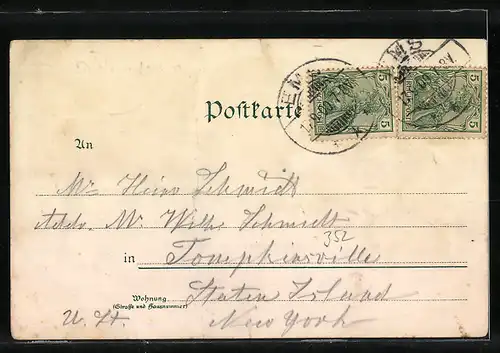 EMS
EMS
5
5
Postkarte
An
Mr Heinr Schmidt
Mr. Wilh. Schmidt
352
in Tompkinsville
Wohnung
(Straße und Hausnummer)
Staten Island
U. St. New York